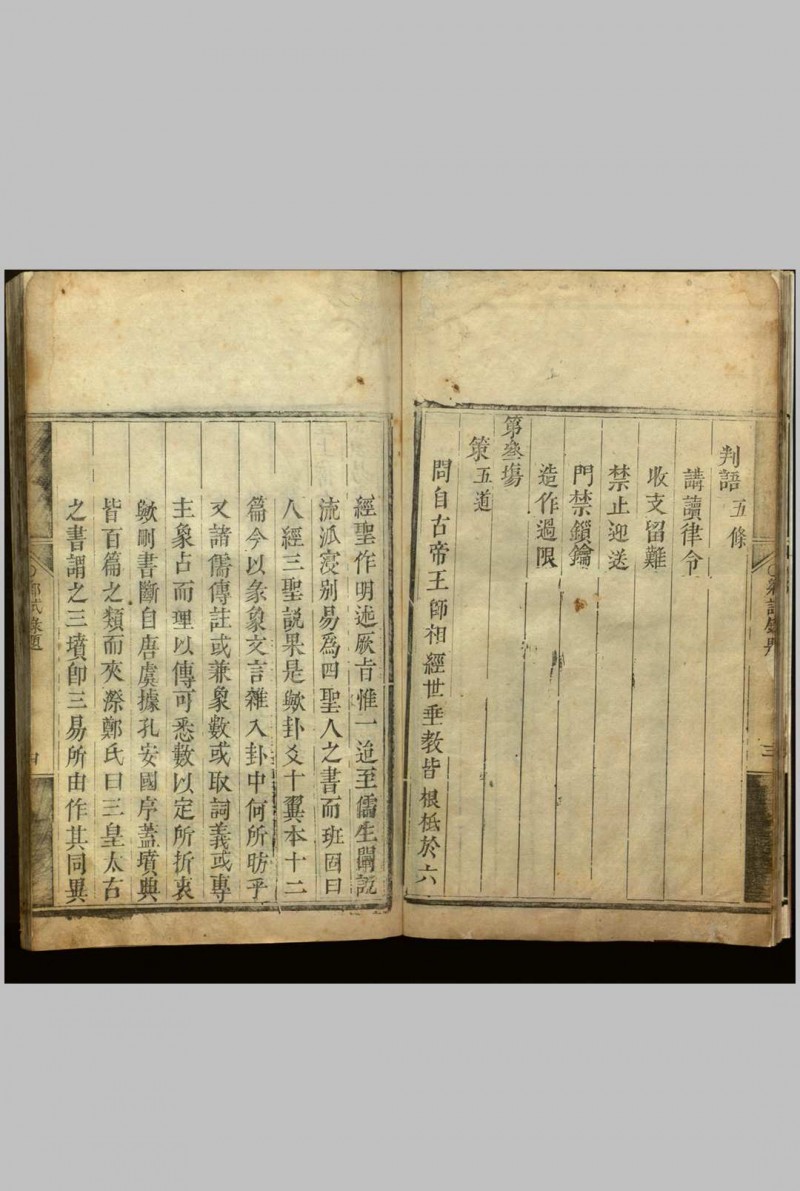 判語五條
講讀律令
收支留難
禁止迎送
門禁鎖鑰
造作過限
第叄塲
策五道
問自古帝王師相經世垂教皆根柢於六
經聖作明述厥旨惟一迨至儒生闡説
流派寖别易爲四聖人之書而班固曰
人經三聖説果是歟卦爻十翼本十二
篇今以彖象文言雜入卦中何所昉乎
又諸儒傳註或兼象數或取詞義或專
主象占而理以傳可悉數以定所折衷
歟刪書斷自唐虞據孔安國序蓋墳典
皆百篇之類而夾漈鄭氏曰三皇太古
之書謂之三墳卽三易所由作其同異
三
鄉試錄題